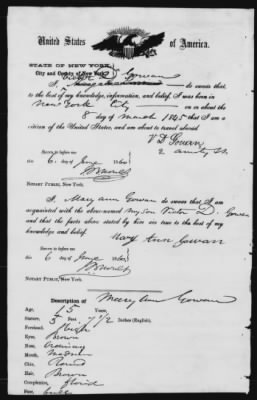 United States of America.
STATE OF NEW YORK,
City and County of New York
Victor D Gowan
I, do swear, that
to the best of my knowledge, information, and belief, I was born in
New York City on or about the
8 day of March 1845 that I am a
citizen of the United States, and am about to travel abroad
V D Gowan
2 Amity St
Sworn to before me
this 6 day of June 186
NOTARY PUBLIC, New York.
I, Mary Ann Gowan do swear that I am
acquainted with the above-named my son Victor D. Gowan
and that the facts above stated by him are true to the best of my
knowledge and belief.
Mary Ann Gowan
Sworn to before me
this 6 day of June 186
NOTARY PUBLIC, New York.
Description of Mary Ann Gowan
Age, 5 Years,
Stature, 5 Feet 7 1/2 Inches (English).
Forehead, High
Eyes, Brown
Nose, Ordinary
Mouth, Medium
Chin, Round
Hair, Brown
Complexion, Florid
Face,